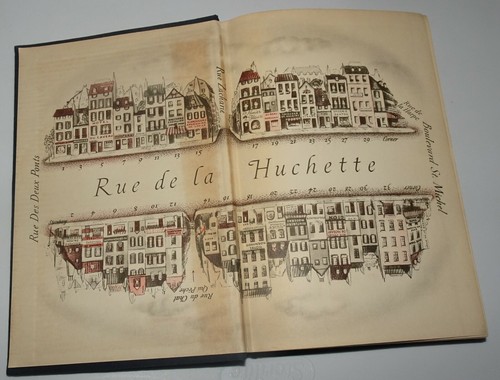 Rue Zacharie
Rue de la Harpe
Boulevard St. Michel
Rue Des Deux Ponts
1 3 5 7 9 11 13 15
17 19 21 23 25 27 29 Corner
Rue de la Huchette
2 4 6 8 10 12
14 16 18 20 22 24 26 28 30 32 Corner
Rue du Chat
Qui Pêche